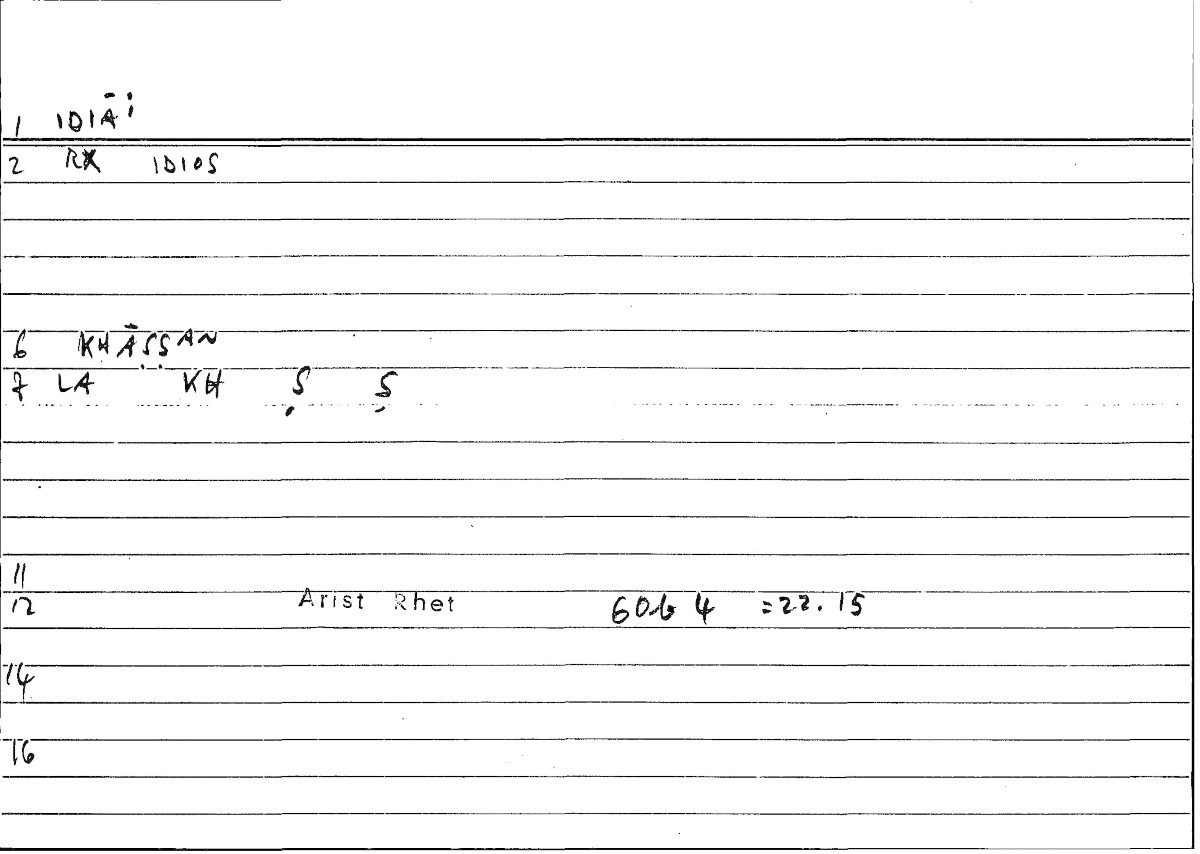 1 IDIĀi
2 RX IDIOS
6 KHĀṢṢAN
7 LA KH Ṣ Ṣ
11
12 Arist Rhet 60b 4 =22.15
14
16